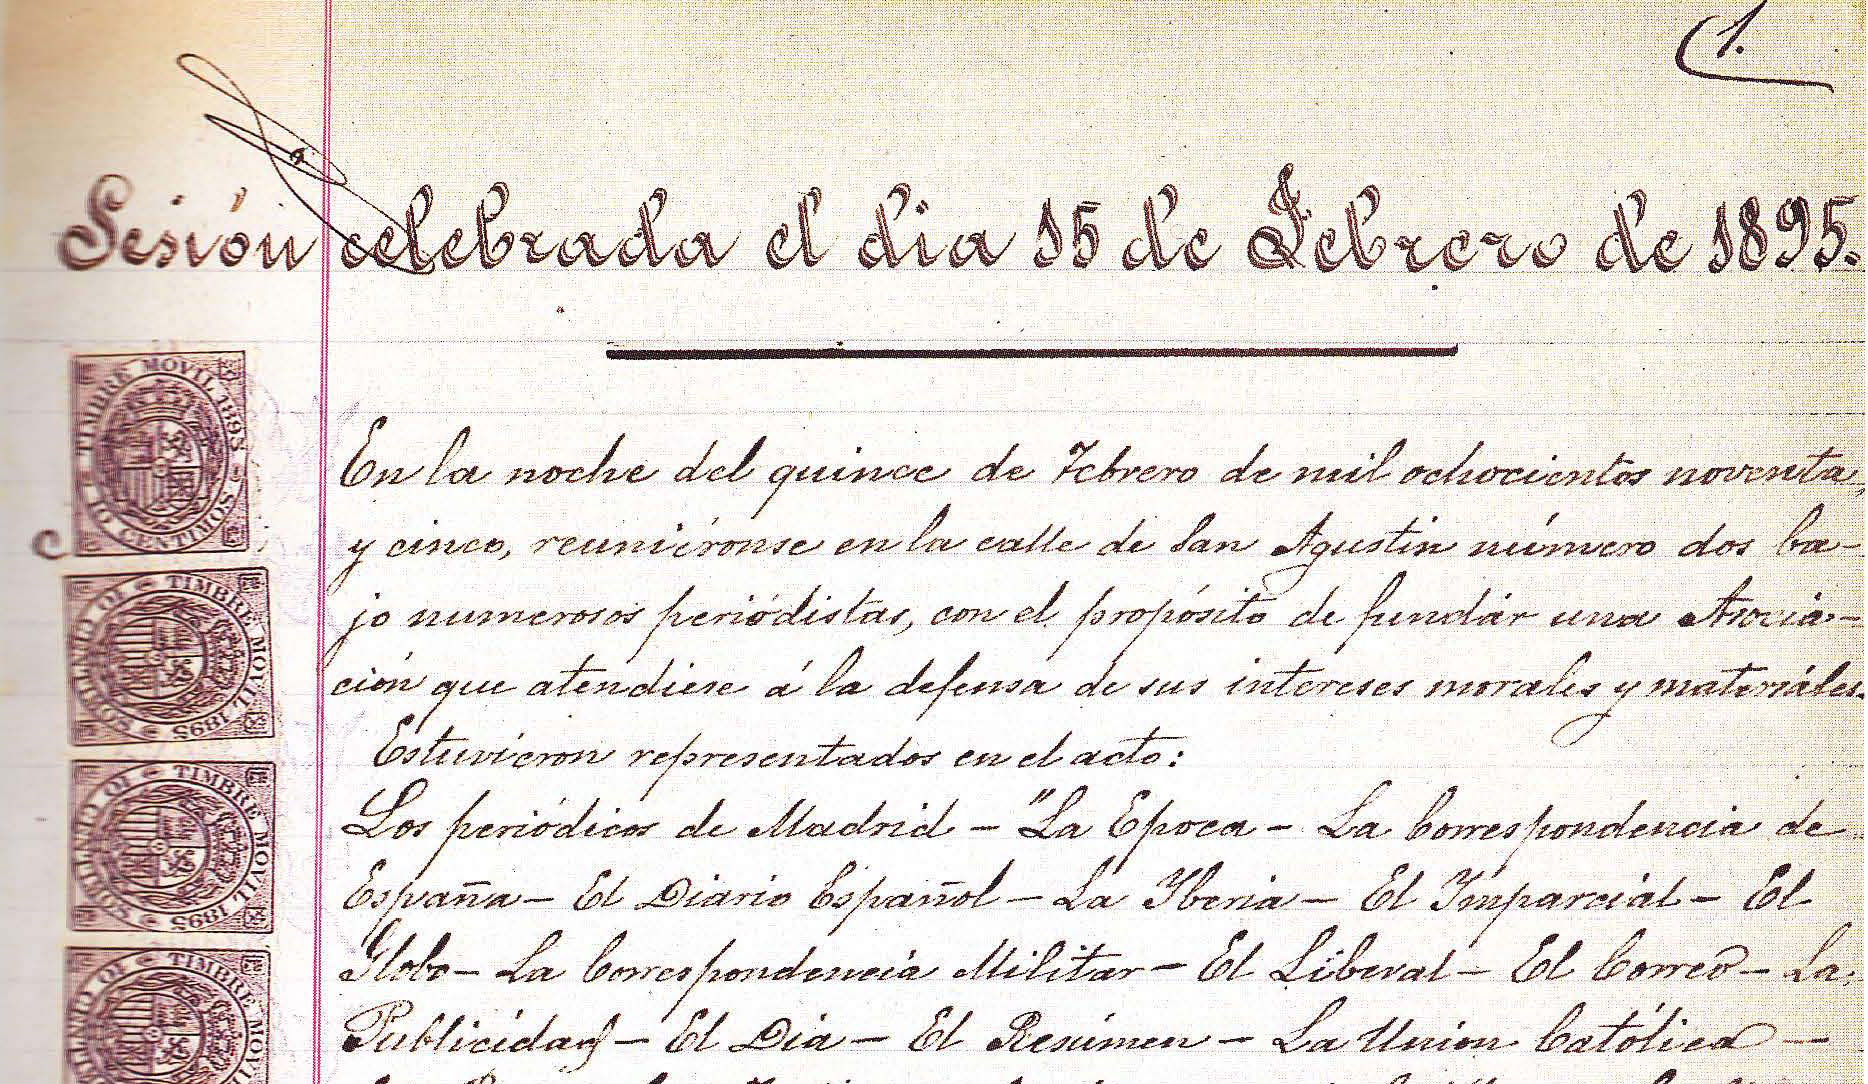 1.
Sesión celebrada el dia 15 de Febrero de 1895.
En la noche del quince de Febrero de mil ochocientos noventa
y cinco, reuniéronse en la calle de San Agustin número dos ba-
jo numerosos periódistas, con el propósito de fundár una Asocia-
ción que atendiese á la defensa de sus intereses morales y materiáles.
Estuvieron representados en el acto:
Los periódicos de Madrid - "La Epoca - La Correspondencia de
España - El Diario Español - La Yberia - El Ymparcial - El
Globo - La Correspondencia Militar - El Liberal - El Correo - La
Publicidad - El Dia - El Resúmen - La Union Católica -
TIMBRE MOVIL 1895
10 CENTIMOS
TIMBRE MOVIL 1895
10 CENTIMOS
TIMBRE MOVIL 1895
10 CENTIMOS
TIMBRE MOVIL
10 CENTIMOS